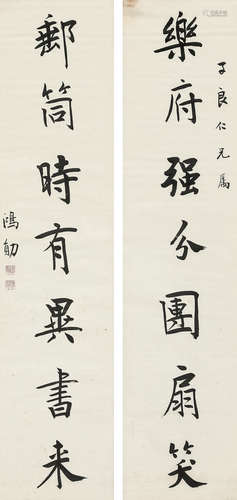 樂府强分團扇笑
子良仁兄属
郵筒時有異書来
鴻勛